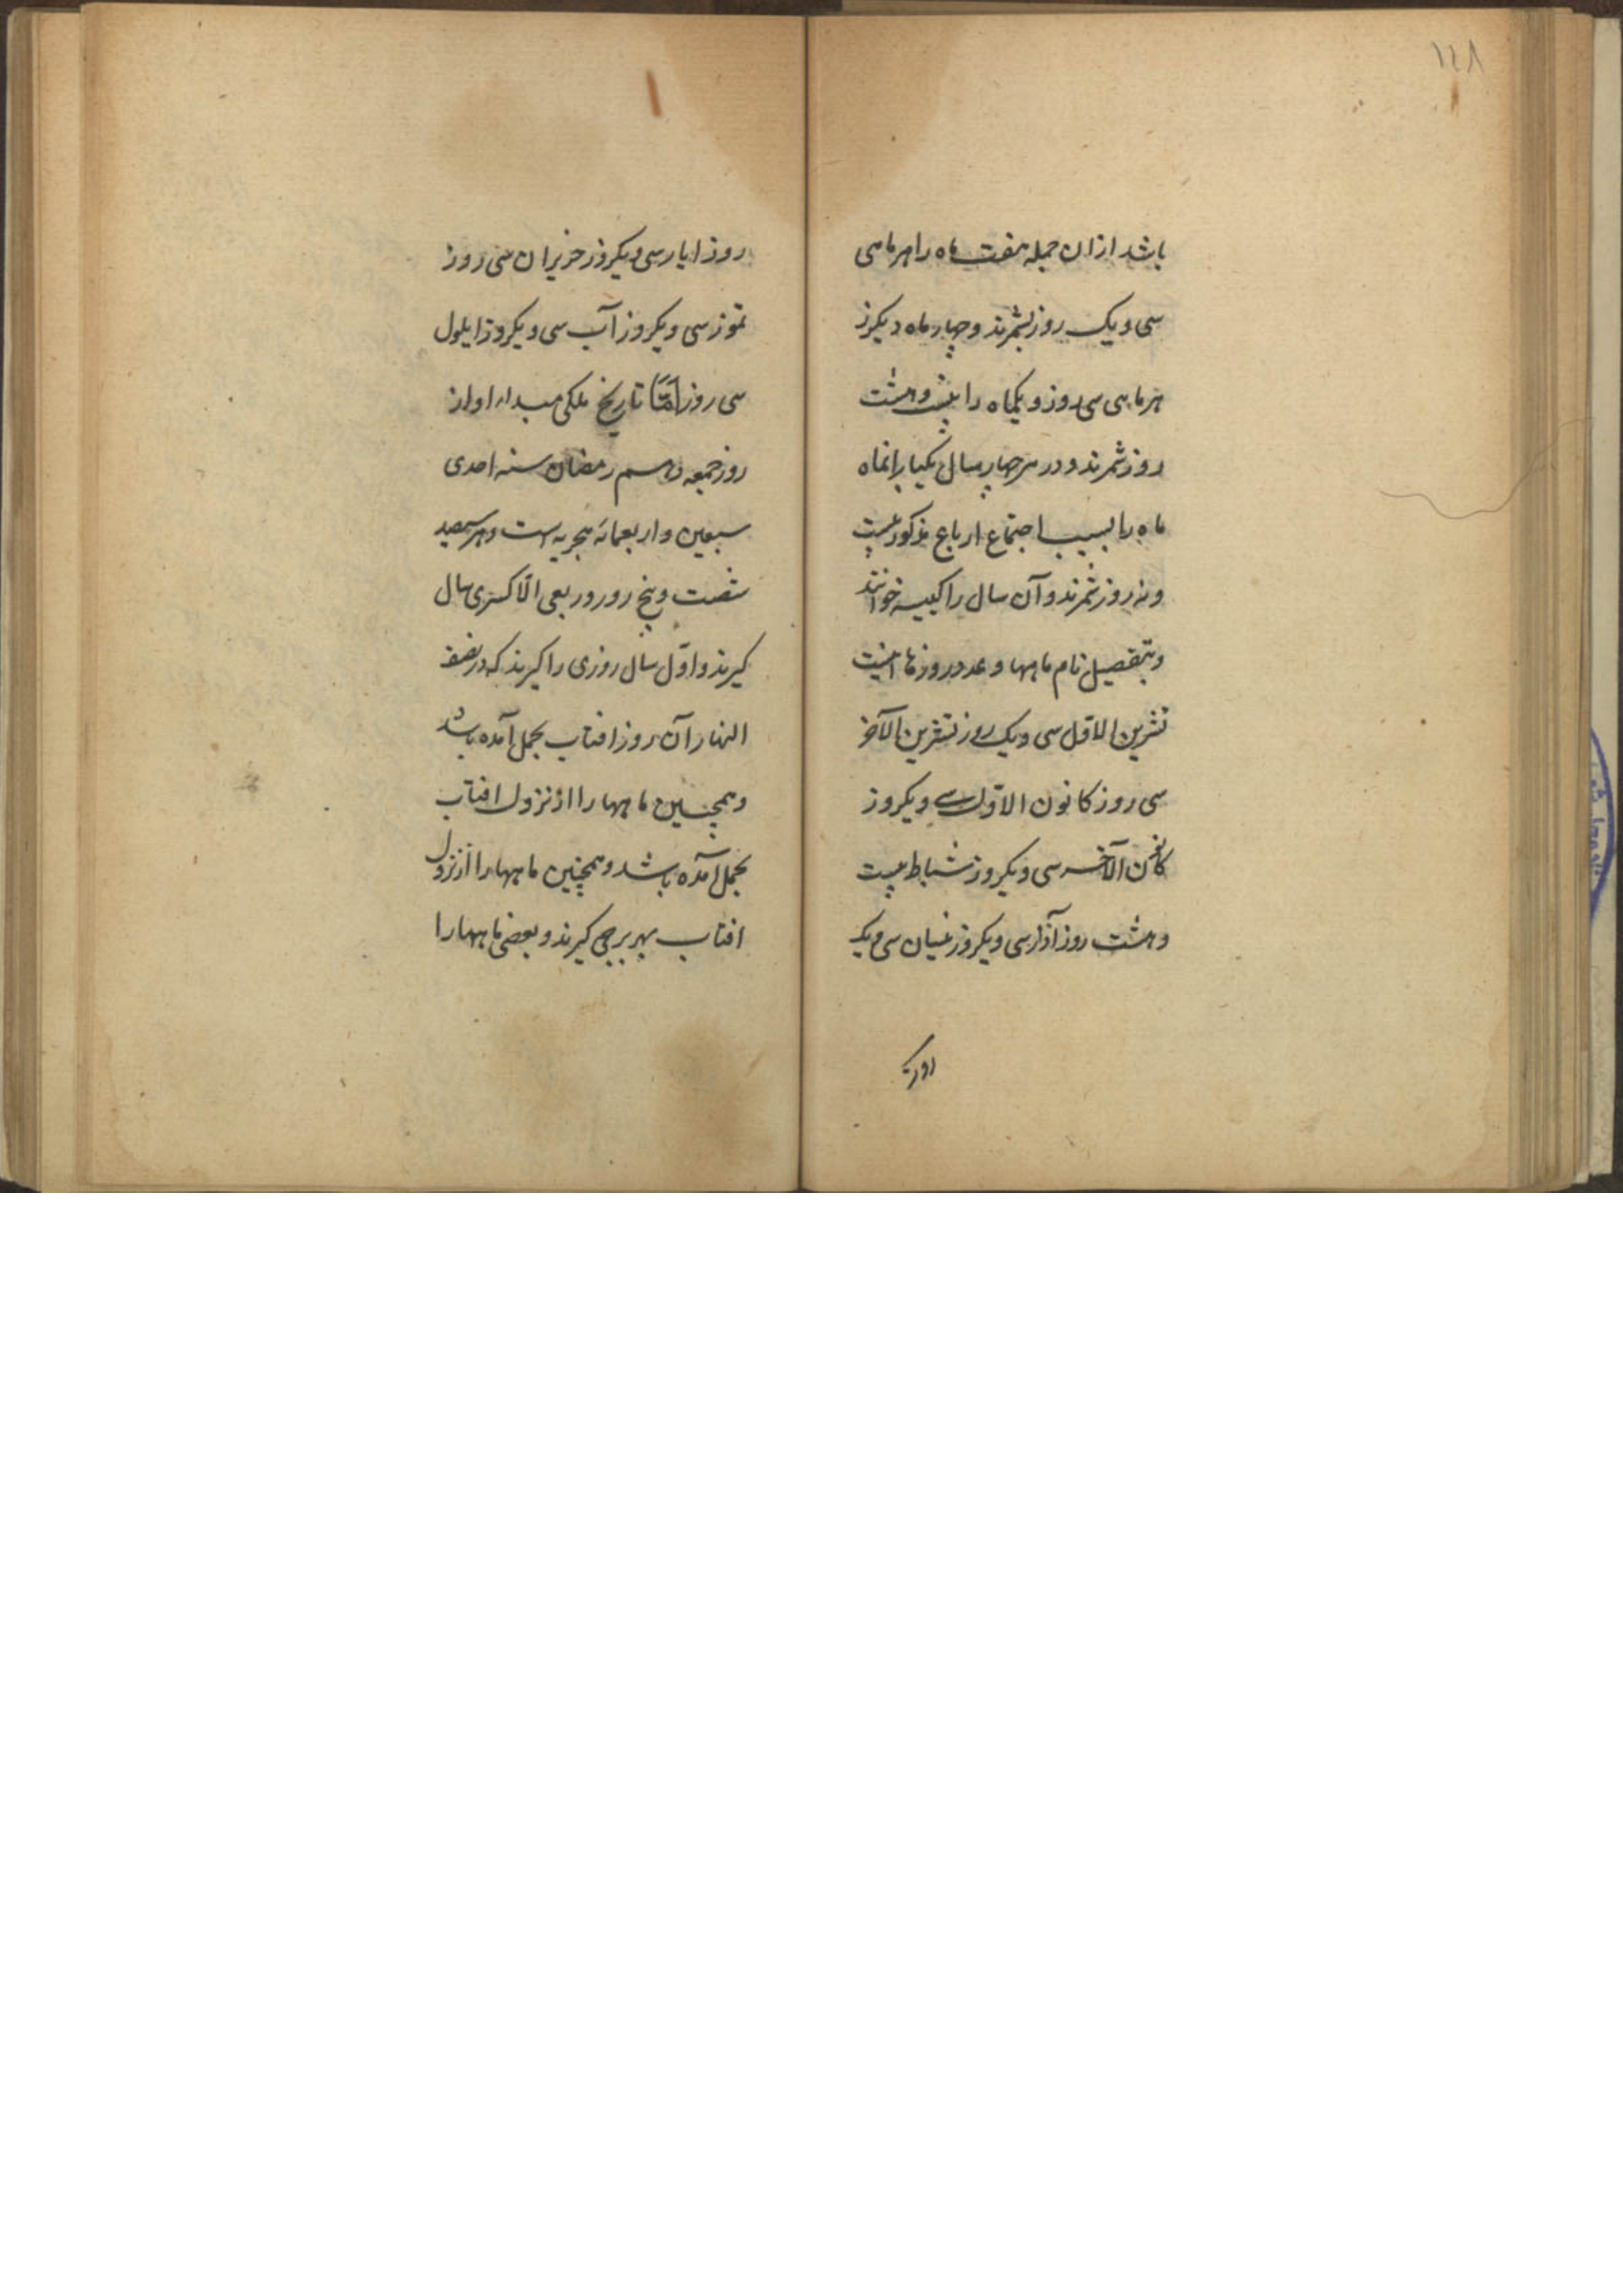 ۱۲۸
باشد ازان جمله هفت ماه را هر ماهی
سی و یک روز بشمرند و چهار ماه دیگرز
هر ماهی سی روز و یکماه را بیست و هشت
روز شمرند و در هر چهار سال یکبار انماه
ماه را بسبب اجتماع ارباع مذکور بیست
و نه روز شمرند و آن سال را کبیسه خوانند
و بتفصیل نام ماهها و عدد روزها اینست
تشرین الاول سی و یک روز تشرین الآخر
سی روز کانون الاول سی و یکروز
کانون الآخر سی و یکروز شباط بیست
و هشت روز آذار سی و یکروز نیسان سی و یک
روز
روز ایار سی و یکروز حزیران سی روز
تموز سی و یکروز آب سی و یکروز ایلول
سی روز امّا تاریخ ملکی مبداء او از
روز جمعه دهم رمضان سنه احدی
سبعین و اربعمائه هجریه است و هر سیصد
شصت و پنج روز و ربعی الّا کسری سال
گیرند و اوّل سال روزی را گیرند که در نصف
النهار آن روز افتاب بحمل آمده باشد
و همچنین ماهها را از نزول افتاب
بحمل آمده باشد و همچنین ماهها را از نزول
افتاب بهر برجی گیرند و بعضی ماهها را